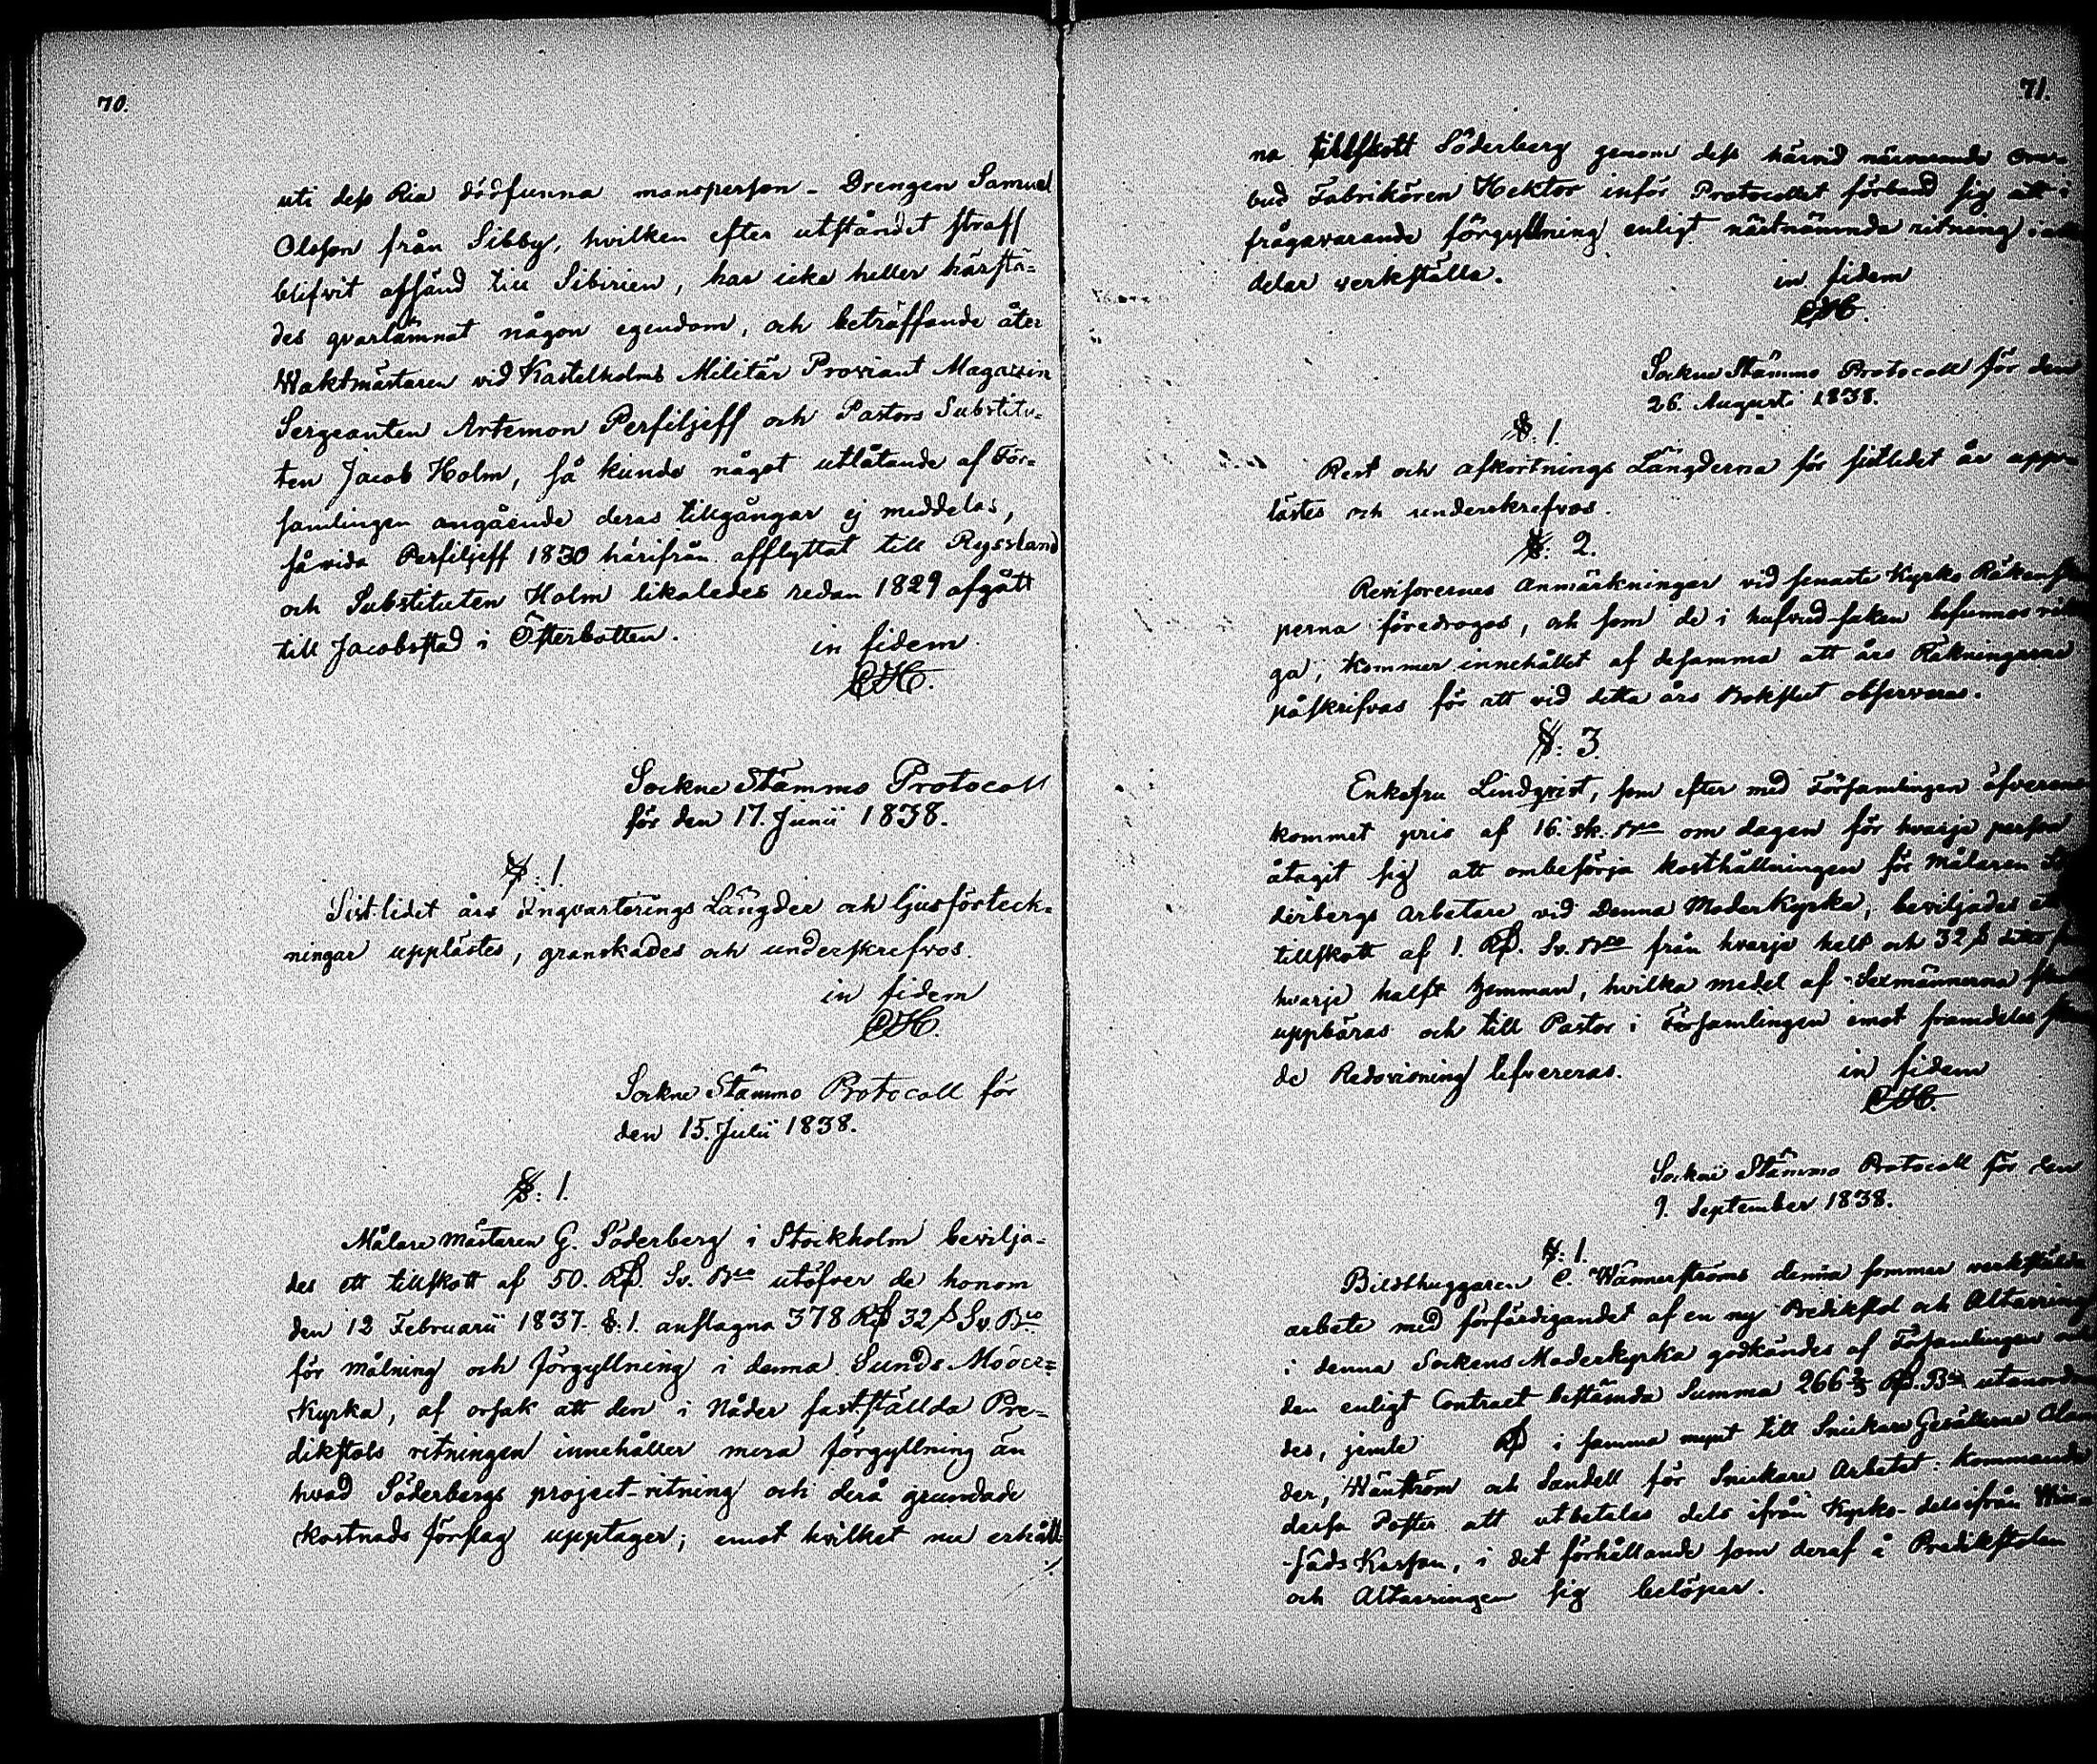 70.
uti dess Ria dödfunna mansperson - Drengen Samuel
Olsson från Sibby, hvilken efter utståndet straff
blifvit afsänd till Sibirien, har icke heller härstä=
des qvarlämnat någon egendom, och beträffande åter
Waktmästaren vid Kastelholms Militär Proviant Magazin
Sergeanten Artemon Perfiljeff och Pastors Substitu=
ten Jacob Holm, så kunde något utlåtande af För=
samlingen angående deras tillgångar ej meddelas,
såvida Perfiljeff 1830 härifrån afflyttat till Ryssland
och Substituten Holm likaledes redan 1829 afgått
till Jacobstad i Österbotten.
in fidem
CH.
Sockne Stämmo Protocoll
för den 17. Junii 1838.
§: 1.
Sist-lidet års Inqvarterings Längder och ljusförteck=
ningar upplästes, granskades och underskrefvos.
in fidem
CH.
Sockne Stämmo Protocoll för
den 15. Julii 1838.
§: 1.
Målare mästaren G. Söderberg i Stockholm bevilja=
des ett tillskott af 50. Rß. Sv. Bco utöfver de honom
den 12 Februarii 1837. §. 1. anslagna 378 Rß 32 ß Sv. Bco
för målning och förgyllning i denna Sunds Moder=
Kyrka, af orsak att den i Nåder fastställda Pre=
dikstols ritningen innehåller mera förgyllning än
hvad Söderbergs project-ritning och derå grundade
kostnads förslag upptager; emot hvilket nu erhåll=
71.
na tillskott Söderberg genom dess härvid närvarande om=
bud Fabrikören Hektor inför Protocollet förband sig att i
frågavarande förgyllning enligt nästnämnda ritning i alla
delar verkställa.
in fidem
CH.
Sockne Stämmo Protocoll för den
26. Augusti 1838.
§: 1.
Rest och afkortnings Längderna för sistledet år upp=
lästes och underskrefvos.
§: 2.
Revisorernes Anmärkningar vid senaste Kyrko Räkenska
perna föredrogos, och som de i hufvud-saken befunnos rikti
ga, kommer innehållet af desamma att års Räkningarne
påskrifvas för att vid detta års Bokslut observeras.
§: 3.
Enkefru Lindqvist, som efter med Församlingen öfverens
kommet pris af 16. sk. Bco om dagen för hvarje person
åtagit sig att ombesörja kosthållningen för Målaren Sö
derbergs Arbetare vid denna Moderkyrka, beviljades ett
tillskott af 1. Rß. Sv. Bco från hvarje helt och 32 ß dito från
hvarje halft Hemman, hvilka medel af Sexmännerna skola
uppbäras och till Pastor i Församlingen emot framdeles
de Redovisning lefvereras.
in fidem
CH.
Sockne Stämmo Protocoll för den
9. September 1838.
§: 1.
Bildthuggaren C. Wännerströms denna sommar verkställda
arbete med förfärdigandet af en ny Predikstol och Altarring
i denna Sockens Moderkyrka godkändes af Församlingen och
den enligt Contract bestämda Summa 266 2/3 Rß. Bco utanord
des, jemte Rß i samma mynt till Snickare Gesällerne
der, Wänström och Sandell för Snickare Arbetet: kommande
dessa Poster att utbetalas dels ifrån Kyrko- dels ifrån Win
säds Kassan, i det förhållande som deraf å Predikstolen
och Altarringen sig belöper.